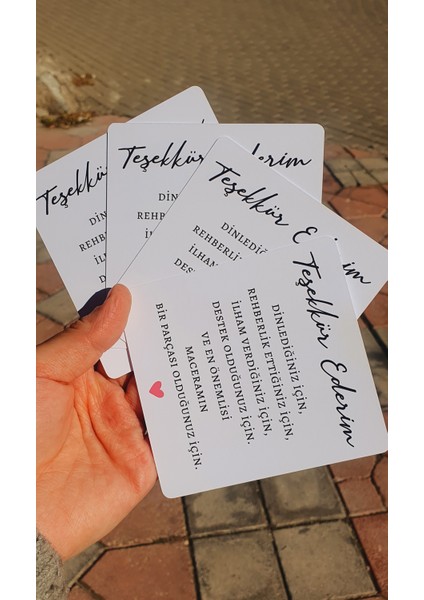 Teşekkür Ederim
DİNLEDİĞİNİZ İÇİN,
REHBERLİK ETTİĞİNİZ İÇİN,
İLHAM VERDİĞİNİZ İÇİN,
DESTEK OLDUĞUNUZ İÇİN.
VE EN ÖNEMLİSİ
MACERAMIN
BİR PARÇASI OLDUĞUNUZ İÇİN.
Teşekkür E
im
DİNLEDİĞ
REHBERLİ
İLHAM
DES
Teşekkür
derim
DİN
REHBE
İLH
D
Teşekkü
DİNL
REHBER
İLHA
D